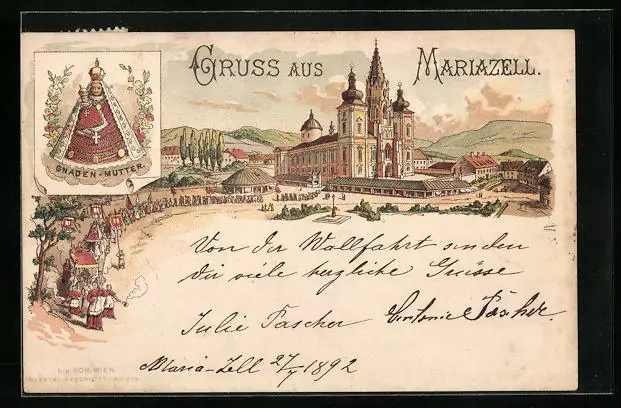 GRUSS AUS MARIAZELL.
GNADEN-MUTTER.
Von der Wallfahrt senden
dir viele herzliche Grüsse
Julie Pascher Antonie Pascher
Maria-Zell 27/7 1892
WIEN